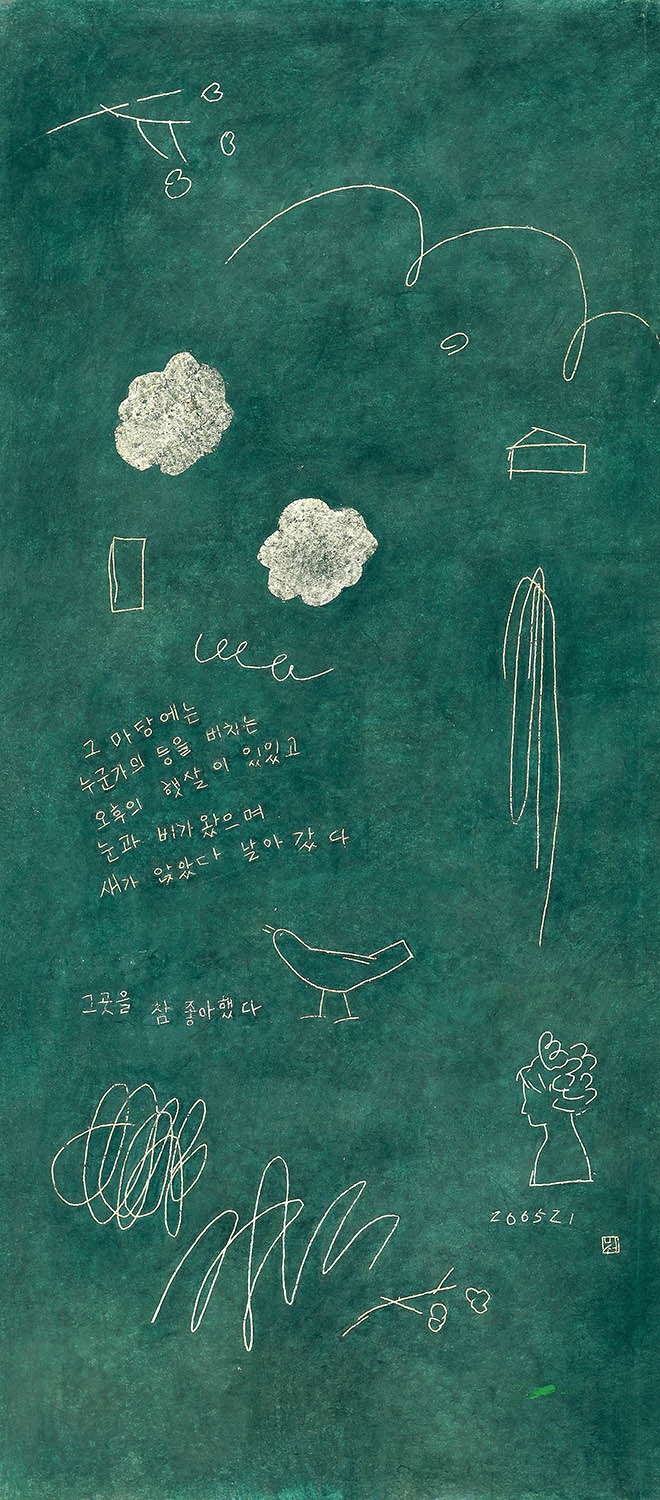 그 마당에는
누군가의 등을 비치는
오후의 햇살이 있었고
눈과 비가 왔으며
새가 앉았다 날아 갔다
그곳을 참 좋아했다
200521